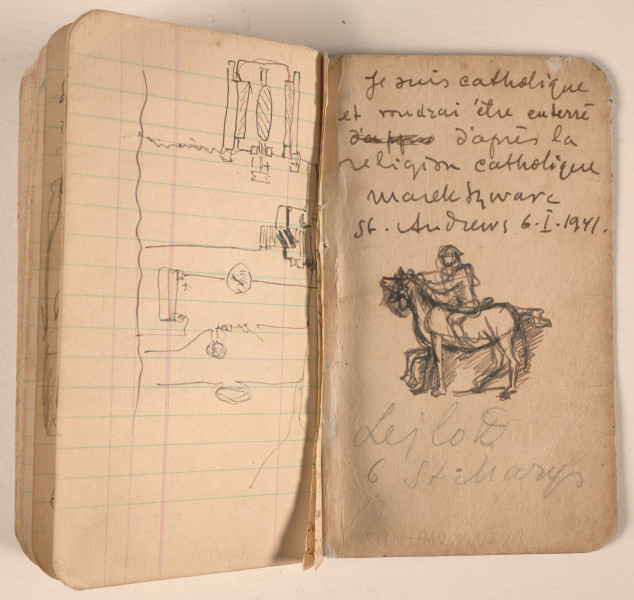 Je suis catholique
et voudrai être enterré
d'après la
religion catholique
Marek Szwarc
St. Andrews 6.I.1941.
6 St. Marys